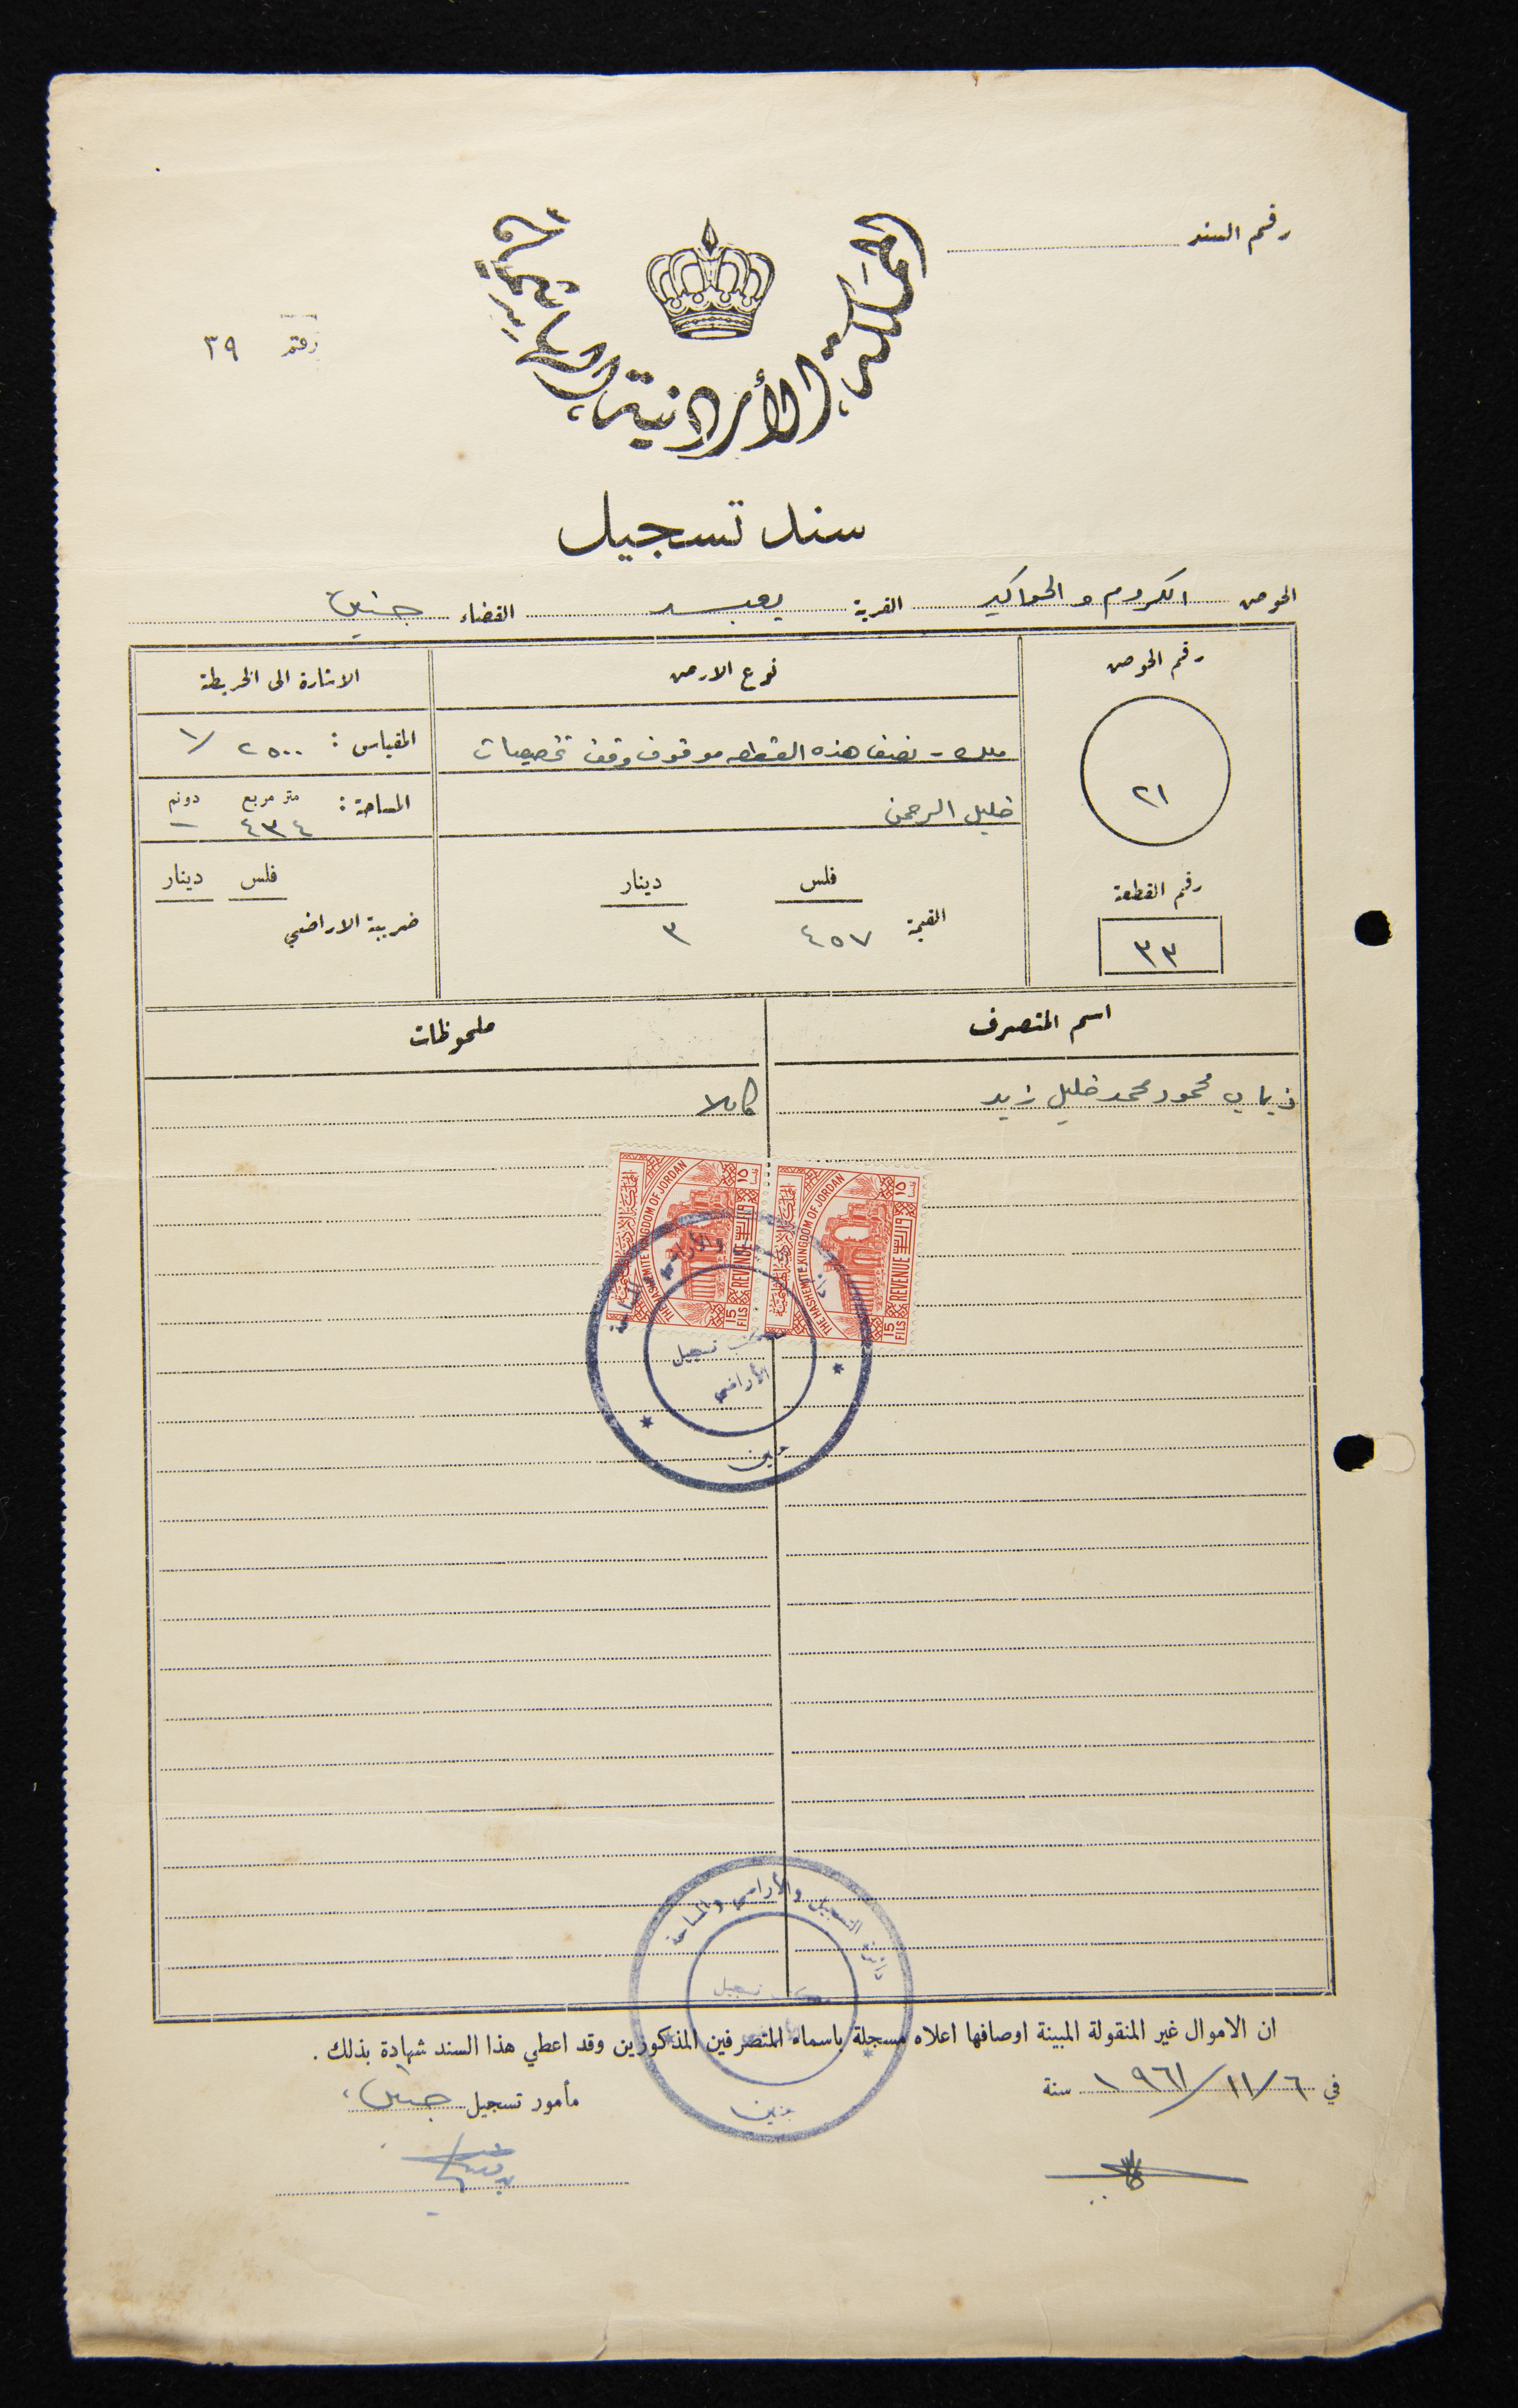 رقم السند
المملكة الأردنية الهاشمية
رقم ٣٩
سند تسجيل
الحوض الكروم والحواكير القرية يعبد القضاء جنين
رقم الحوض
٢١
رقم القطعة
٣٣
نوع الارض
ملك - نصف هذه القطعه موقوف وقف تخصيصات
خليل الرحمن
فلس دينار
القيمة ٤٥٧ ٣
الاشارة الى الخريطة
المقياس : ١/٢٥٠٠
متر مربع دونم
المساحة : ٤٣٤ —
فلس دينار
ضريبة الاراضي
اسم المتصرف ملحوظات
ذياب محمود محمد خليل زيد كاملا
المملكة الأردنية الهاشمية
THE HASHEMITE KINGDOM OF JORDAN
REVENUE
15 FILS
١٥
المملكة الأردنية الهاشمية
THE HASHEMITE KINGDOM OF JORDAN
REVENUE
15 FILS
١٥
والأراضي والمساحة
مكتب تسجيل
الأراضي
جنين
دائرة التسجيل والأراضي والمساحة
مكتب تسجيل
جنين
ان الاموال غير المنقولة المبينة اوصافها اعلاه مسجلة باسماء المتصرفين المذكورين وقد اعطي هذا السند شهادة بذلك .
في ٦/١١/١٩٦١ سنة
مأمور تسجيل جنين